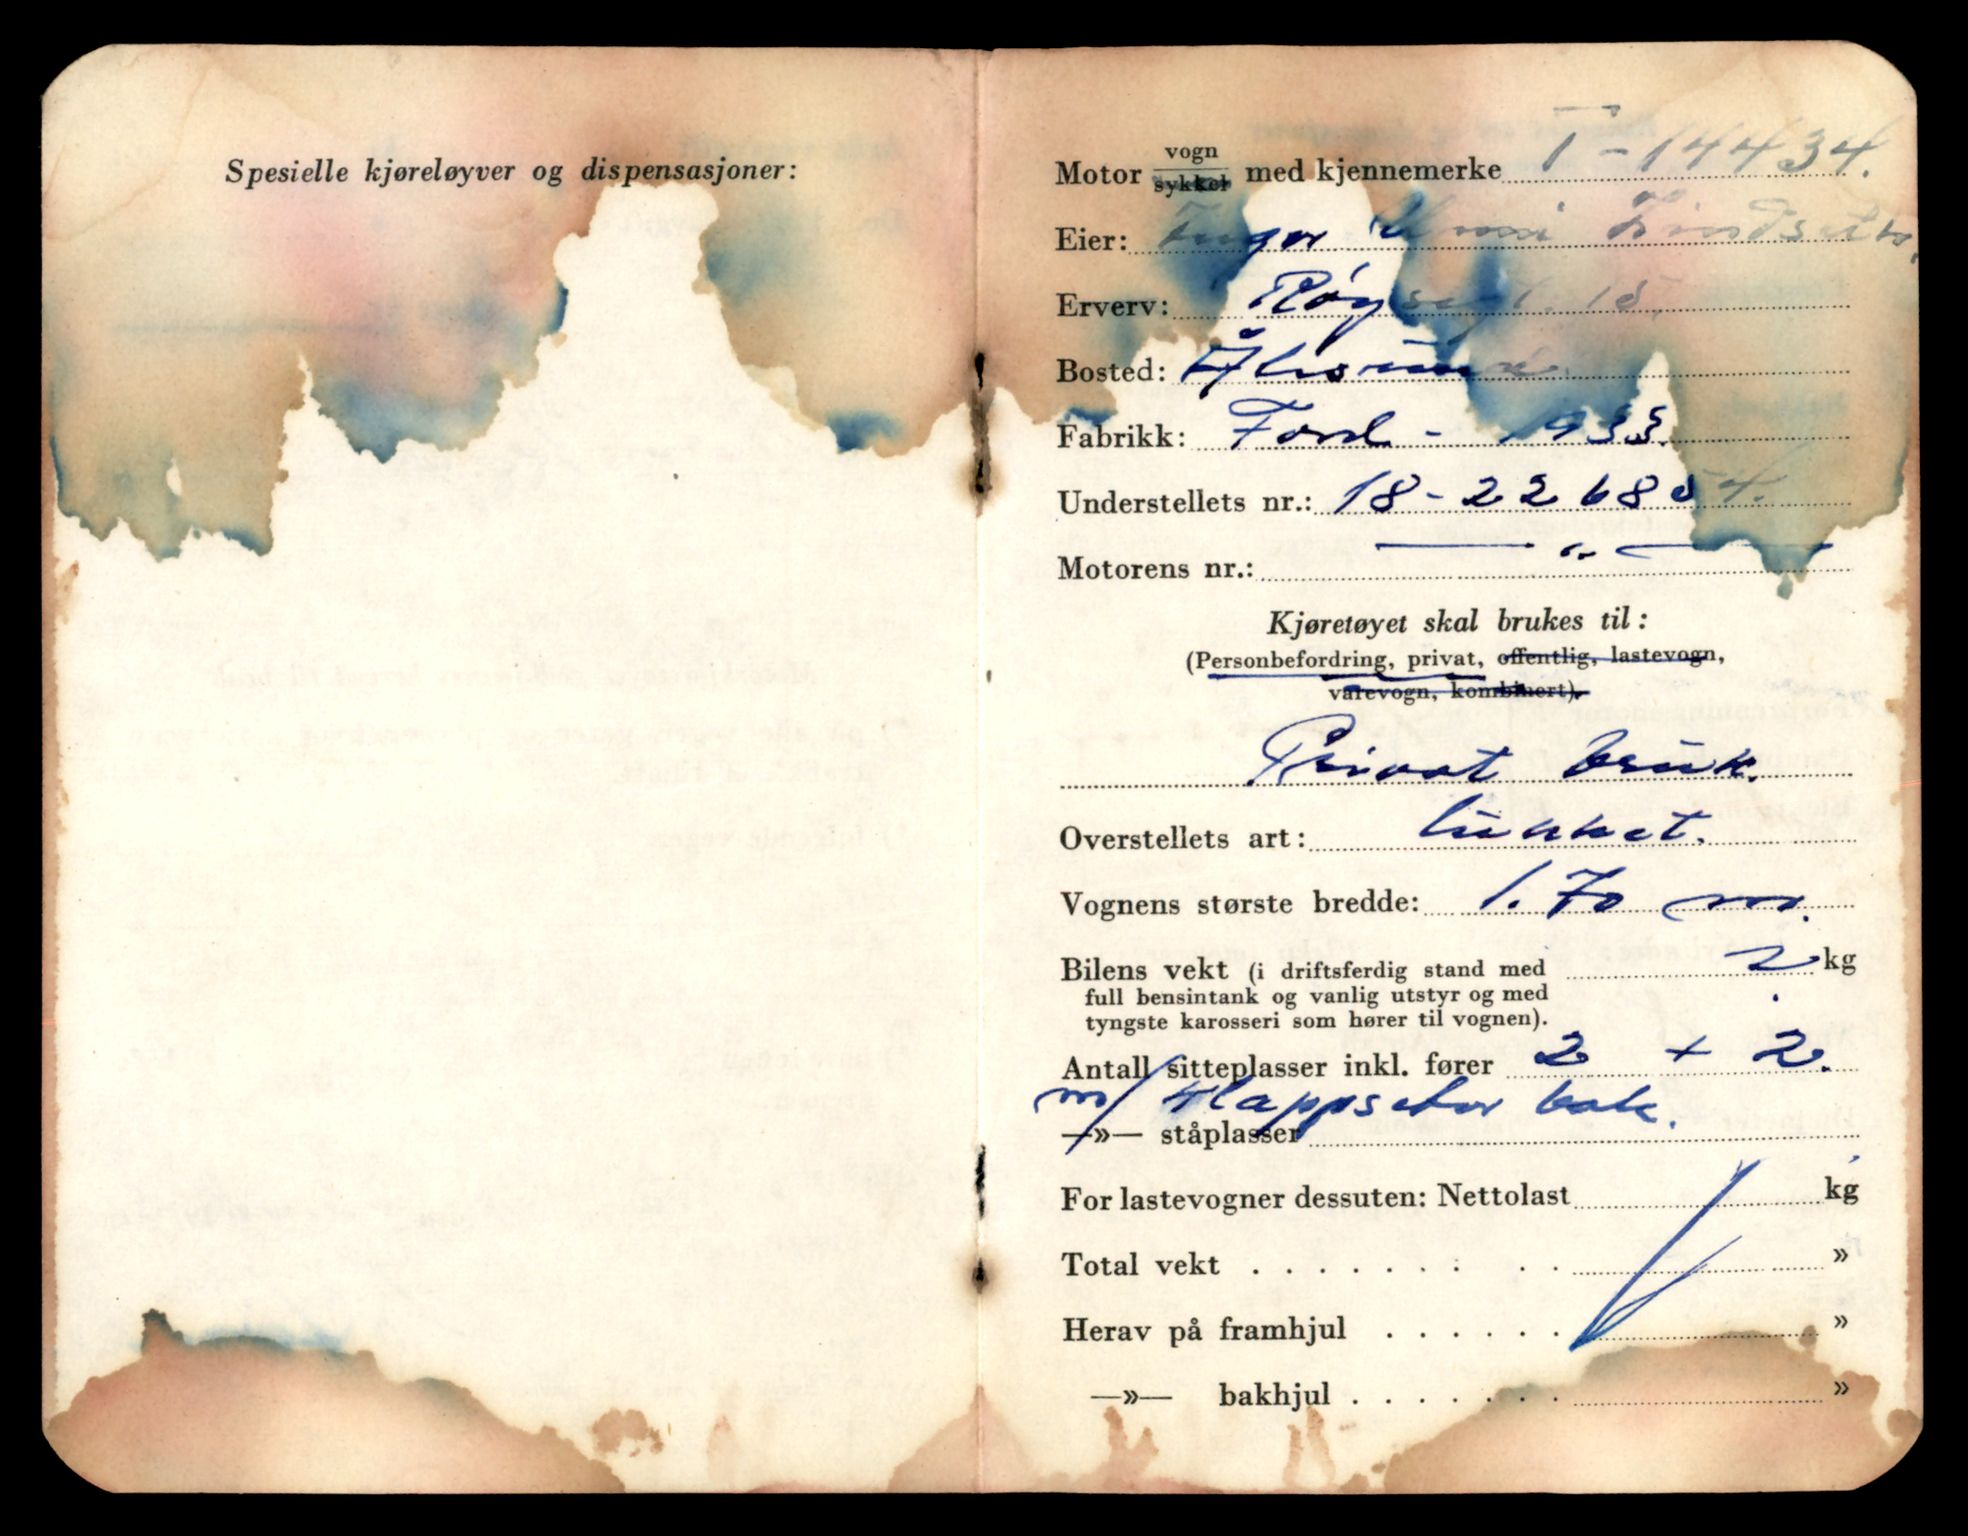 Spesielle kjøreløyver og dispensasjoner:
Motor vogn sykkel med kjennemerke T-14434.
Eier: Inger
Erverv: Røysegt. 15.
Bosted: Ålesund
Fabrikk: Ford - 1933.
Understellets nr.: 18-2268
Motorens nr.: — „ —
Kjøretøyet skal brukes til:
(Personbefordring, privat, offentlig, lastevogn,
varevogn, kombinert).
Privat bruk.
Overstellets art: lukket.
Vognens største bredde: 1.70 m.
Bilens vekt (i driftsferdig stand med ? kg
full bensintank og vanlig utstyr og med
tyngste karosseri som hører til vognen).
Antall sitteplasser inkl. fører 2 + 2.
m/ klappseter bak.
—»— ståplasser
For lastevogner dessuten: Nettolast kg
Total vekt . . . . . . . . . »
Herav på framhjul . . . . . . »
—»— bakhjul . . . . . . . »